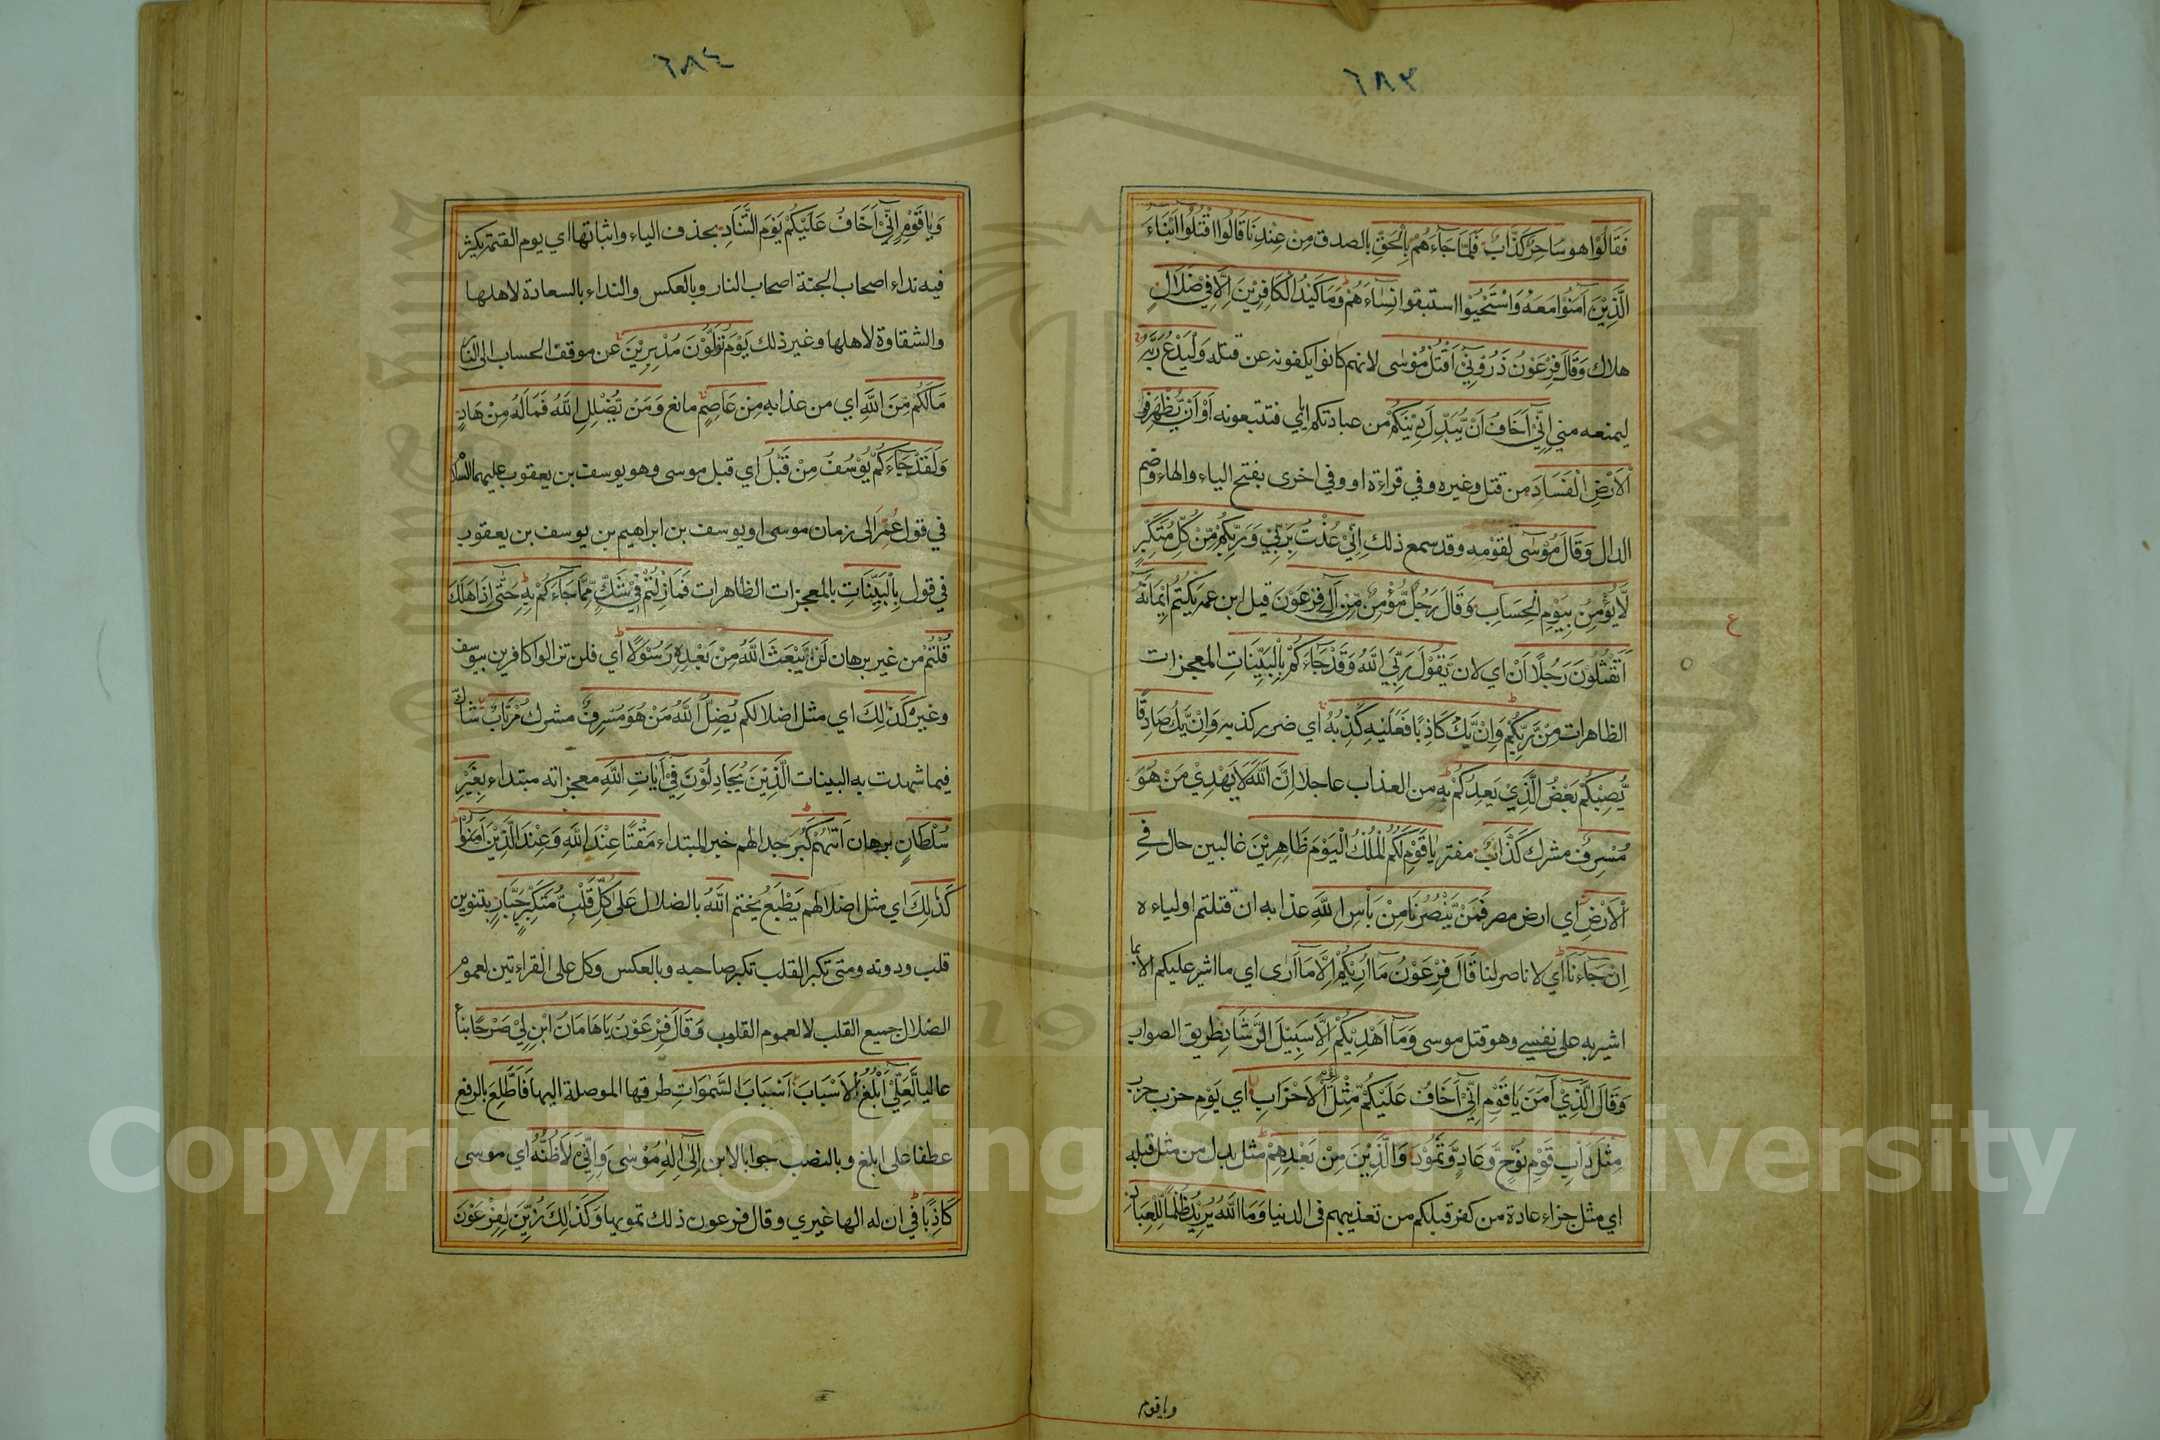 ٦٨٣
فَقَالُوْا هو سَاحِرٌ كَذَّابٌ فَلَمَّا جَآءَهُمْ بِالْحَقِّ بالصدق مِنْ عِنْدِنَا قَالُوا اقْتُلُوْا اَبْنَآءَ
الَّذِيْنَ آمَنُوْا مَعَهُ وَاسْتَحْيُوْا استبقوا نِسَآءَهُمْ وَمَا كَيْدُ الْكَافِرِيْنَ اِلَّا فِيْ ضَلَالٍ
هلاك وَقَالَ فِرْعَوْنُ ذَرُوْنِيْٓ اَقْتُلْ مُوْسٰى لانهم كانوا يكفونه عن قتله وَلْيَدْعُ رَبَّهٗ
ليمنعه مني اِنِّيْٓ اَخَافُ اَنْ يُّبَدِّلَ دِيْنَكُمْ من عبادتكم اياي فتتبعونه اَوْ اَنْ يُّظْهِرَ فِي
الْاَرْضِ الْفَسَادَ من قتل وغيره وفي قراءة او وفي اخرى بفتح الياء والهاء وضم
الدال وَقَالَ مُوْسٰٓى لقومه وقد سمع ذلك اِنِّيْ عُذْتُ بِرَبِّيْ وَرَبِّكُمْ مِّنْ كُلِّ مُتَكَبِّرٍ
لَّا يُؤْمِنُ بِيَوْمِ الْحِسَابِ وَقَالَ رَجُلٌ مُّؤْمِنٌ مِّنْ آلِ فِرْعَوْنَ قيل ابن عمه يَكْتُمُ اِيْمَانَهٗ
اَتَقْتُلُوْنَ رَجُلًا اَنْ اي لان يَّقُوْلَ رَبِّيَ اللّٰهُ وَقَدْ جَآءَكُمْ بِالْبَيِّنَاتِ المعجزات
الظاهرات مِنْ رَّبِّكُمْ وَاِنْ يَّكُ كَاذِبًا فَعَلَيْهِ كَذِبُهٗ اي ضرر كذبه وَاِنْ يَّكُ صَادِقًا
يُّصِبْكُمْ بَعْضُ الَّذِيْ يَعِدُكُمْ به من العذاب عاجلا اِنَّ اللّٰهَ لَا يَهْدِيْ مَنْ هُوَ
مُسْرِفٌ مشرك كَذَّابٌ مفتر يَاقَوْمِ لَكُمُ الْمُلْكُ الْيَوْمَ ظَاهِرِيْنَ غالبين حال فِي
الْاَرْضِ اي ارض مصر فَمَنْ يَّنْصُرُنَا مِنْ بَاْسِ اللّٰهِ عذابه ان قتلتم اولياءه
اِنْ جَآءَنَا اي لا ناصر لنا قَالَ فِرْعَوْنُ مَآ اُرِيْكُمْ اِلَّا مَآ اَرٰى اي ما اشير عليكم الا بما
اشير به على نفسي وهو قتل موسى وَمَآ اَهْدِيْكُمْ اِلَّا سَبِيْلَ الرَّشَادِ طريق الصواب
وَقَالَ الَّذِيْٓ آمَنَ يَاقَوْمِ اِنِّيْٓ اَخَافُ عَلَيْكُمْ مِّثْلَ يَوْمِ الْاَحْزَابِ اي يَوْمِ حزب حزب
مِثْلَ دَاْبِ قَوْمِ نُوْحٍ وَّعَادٍ وَّثَمُوْدَ وَالَّذِيْنَ مِنْ بَعْدِهِمْ مثل بدل من مثل قبله
اي مثل جزاء عادة من كفر قبلكم من تعذيبهم في الدنيا وَمَا اللّٰهُ يُرِيْدُ ظُلْمًا لِّلْعِبَادِ
ع
وياقوم
٦٨٤
وَيَاقَوْمِ اِنِّيْٓ اَخَافُ عَلَيْكُمْ يَوْمَ التَّنَادِ بحذف الياء واثباتها اي يوم القيمة يكثر
فيه نداء اصحاب الجنة اصحاب النار وبالعكس والنداء بالسعادة لاهلها
والشقاوة لاهلها وغير ذلك يَوْمَ تُوَلُّوْنَ مُدْبِرِيْنَ عن موقف الحساب الى النار
مَا لَكُمْ مِّنَ اللّٰهِ اي من عذابه مِنْ عَاصِمٍ مانع وَمَنْ يُّضْلِلِ اللّٰهُ فَمَا لَهُ مِنْ هَادٍ
وَلَقَدْ جَآءَكُمْ يُوْسُفُ مِنْ قَبْلُ اي قبل موسى وهو يوسف بن يعقوب عليهما السلام
في قول عُمِّرَ الى زمان موسى او يوسف بن ابراهيم بن يوسف بن يعقوب
في قول بِالْبَيِّنَاتِ بالمعجزات الظاهرات فَمَا زِلْتُمْ فِيْ شَكٍّ مِّمَّا جَآءَكُمْ بِهٖ حَتّٰى اِذَا هَلَكَ
قُلْتُمْ من غير برهان لَنْ يَّبْعَثَ اللّٰهُ مِنْ بَعْدِهٖ رَسُوْلًا اي فلن تزالوا كافرين بيوسف
وغيره كَذٰلِكَ اي مثل اضلالكم يُضِلُّ اللّٰهُ مَنْ هُوَ مُسْرِفٌ مشرك مُّرْتَابٌ شاكّ
فيما شهدت به البينات الَّذِيْنَ يُجَادِلُوْنَ فِيْٓ آيَاتِ اللّٰهِ معجزاته مبتداء بِغَيْرِ
سُلْطَانٍ برهان اَتٰىهُمْ كَبُرَ جدالهم خبر المبتداء مَقْتًا عِنْدَ اللّٰهِ وَعِنْدَ الَّذِيْنَ آمَنُوْا
كَذٰلِكَ اي مثل اضلالهم يَطْبَعُ يختم اللّٰهُ بالضلال عَلٰى كُلِّ قَلْبِ مُتَكَبِّرٍ جَبَّارٍ بتنوين
قلب ودونه ومتى تكبر القلب تكبر صاحبه وبالعكس وكل على القراءتين لعموم
الضلال جميع القلب لا لعموم القلوب وَقَالَ فِرْعَوْنُ يَاهَامَانُ ابْنِ لِيْ صَرْحًا بناء
عاليا لَّعَلِّيْٓ اَبْلُغُ الْاَسْبَابَ اَسْبَابَ السَّمٰوَاتِ طرقها الموصلة اليها فَاَطَّلِعَ بالرفع
عطفا على ابلغ وبالنصب جوابا لابن اِلٰٓى اِلٰهِ مُوْسٰى وَاِنِّيْ لَاَظُنُّهٗ اي موسى
كَاذِبًا في ان له الها غيري وقال فرعون ذلك تمويها وَكَذٰلِكَ زُيِّنَ لِفِرْعَوْنَ
Copyright © King Saud University